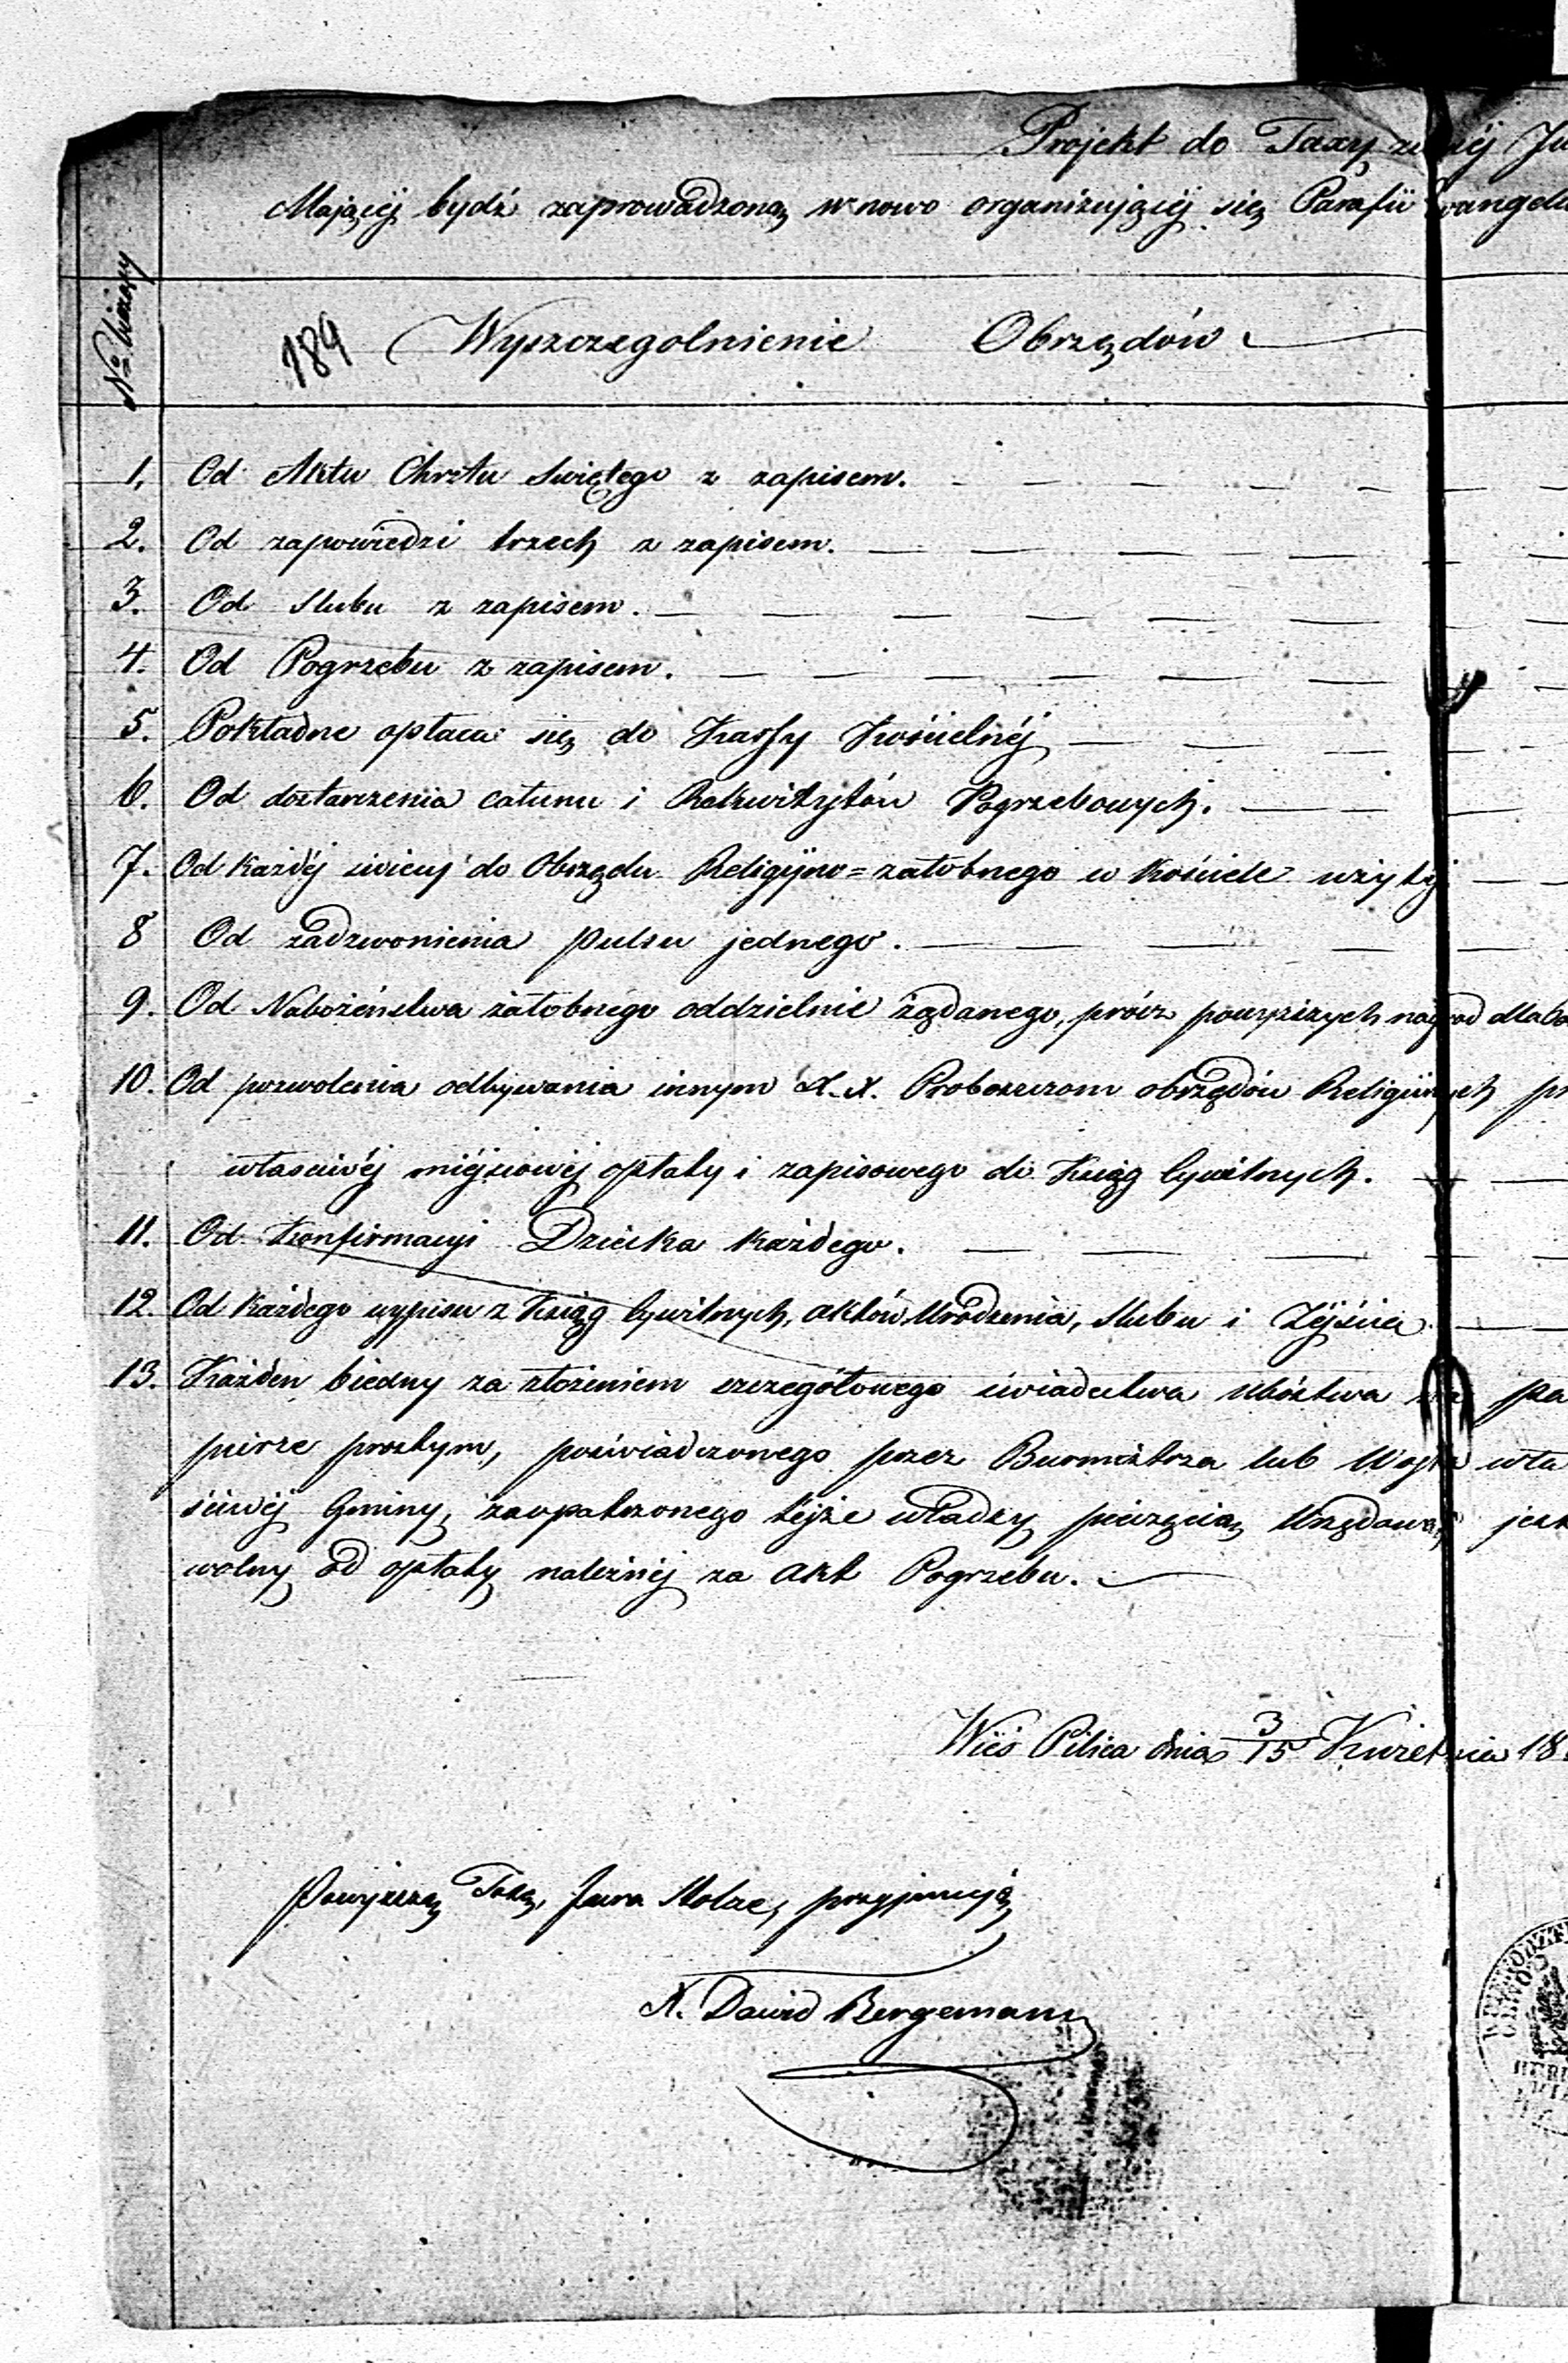 Projekt do Taxy
Mającéj bydź zaprowadzoną w nowo organizującéj się Parafii Ewangelic
No bieżący
189 Wyszczegolnienie Obrzędów
1. Od Aktu Chrztu Swiętego z zapisem.
2. Od zapowiedzi trzech z zapisem.
3. Od Slubu z zapisem.
4. Od Pogrzebu z zapisem.
5. Pokładne opłaca się do Kassy Kościelnéj
6. Od dostarczenia całunu i Rekwizytów Pogrzebowych.
7. Od każdéj świecy do Obrzędu Religijno=żałobnego w kościele użytéj
8 Od zadzwonienia pulsu jednego.
9. Od Nabożeństwa żałobnego oddzielnie żądanego, prócz powyższych nagrod
10. Od pozwolenia odbywania innym X.X. Proboszczom obrzędów Religijnych
właściwéj miéjscowéj opłaty i zapisowego do Ksiąg Cywilnych.
11. Od Konfirmacyi Dziecka każdego.
12. Od każdego wypisu z Ksiąg Cywilnych, aktów Urodzenia, Slubu i Zéjścia
13. Każden biedny za złożeniem szczegółowego świadectwa ubóstwa na pa
pierze prostym, poświadczonego przez Burmistrza lub Wojta wła
ściwéj Gminy, zaopatrzonego tejże władzy pieczęcią Urzędową, jest
wolny od opłaty należnéj za akt Pogrzebu.
Wieś Pilica dnia 3/15 Kwietnia 18
Powyższą Taxę, Jura Stolae, przyjmuję
X. Dawid Bergemann